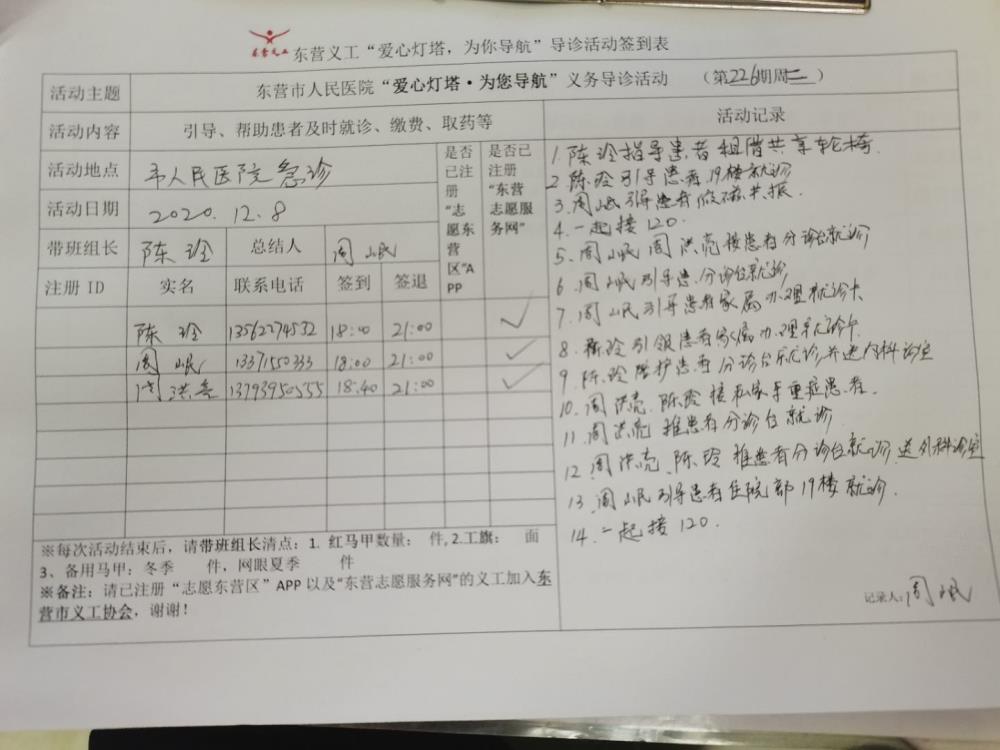 东营义工 东营义工“爱心灯塔，为你导航”导诊活动签到表
活动主题 东营市人民医院“爱心灯塔·为您导航”义务导诊活动 （第226期周二）
活动内容 引导、帮助患者及时就诊、缴费、取药等
活动地点 市人民医院急诊
活动日期 2020.12.8
带班组长 陈玲 总结人 周岷
是否已注册“志愿东营区”APP
是否已注册“东营志愿服务网”
注册ID 实名 联系电话 签到 签退
陈玲 13562274532 18:00 21:00 ✓
周岷 1337150333 18:00 21:00 ✓
周洪亮 13793950555 18:40 21:00 ✓
※每次活动结束后，请带班组长清点：1. 红马甲数量： 件, 2.工旗： 面
3、备用马甲：冬季 件，网眼夏季 件
※备注：请已注册“志愿东营区”APP以及“东营志愿服务网”的义工加入东
营市义工协会，谢谢！
活动记录
1. 陈玲指导患者租借共享轮椅.
2. 陈玲引导患者19楼就诊
3. 周岷引导患者做磁共振.
4. 一起接120.
5. 周岷 周洪亮接患者分诊台就诊
6. 周岷引导患分诊台就诊
7. 周岷引导患者家属办理就诊卡
8. 陈玲引领患者家属办理就诊卡
9. 陈玲陪护患者分诊台就诊,并送内科诊室
10. 周洪亮.陈玲接私家车重症患者.
11. 周洪亮推患者分诊台就诊
12. 周洪亮、陈玲推患者分诊台就诊,送外科诊室
13. 周岷引导患者住院部19楼就诊.
14. 一起接120.
记录人: 周岷